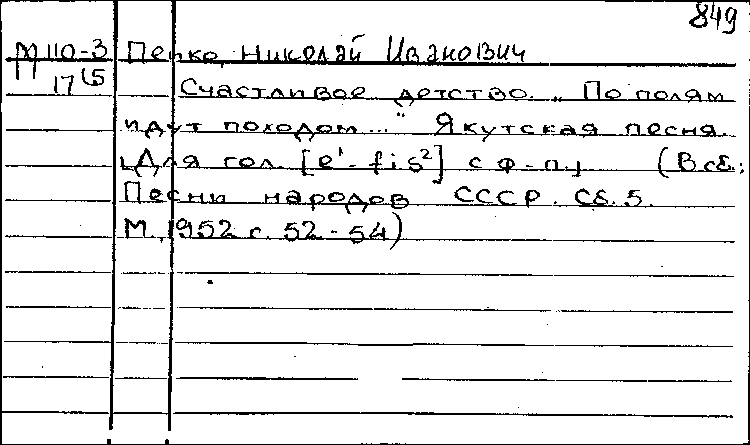 849
М 110-3 Пейко, Николай Иванович
17(5 Счастливое детство. „По полям
идут походом..." Якутская песня.
[Для гол. [e¹-fis²] с ф-п.] (В сб.:
Песни народов СССР. Сб. 5.
М., 1952 с. 52-54)